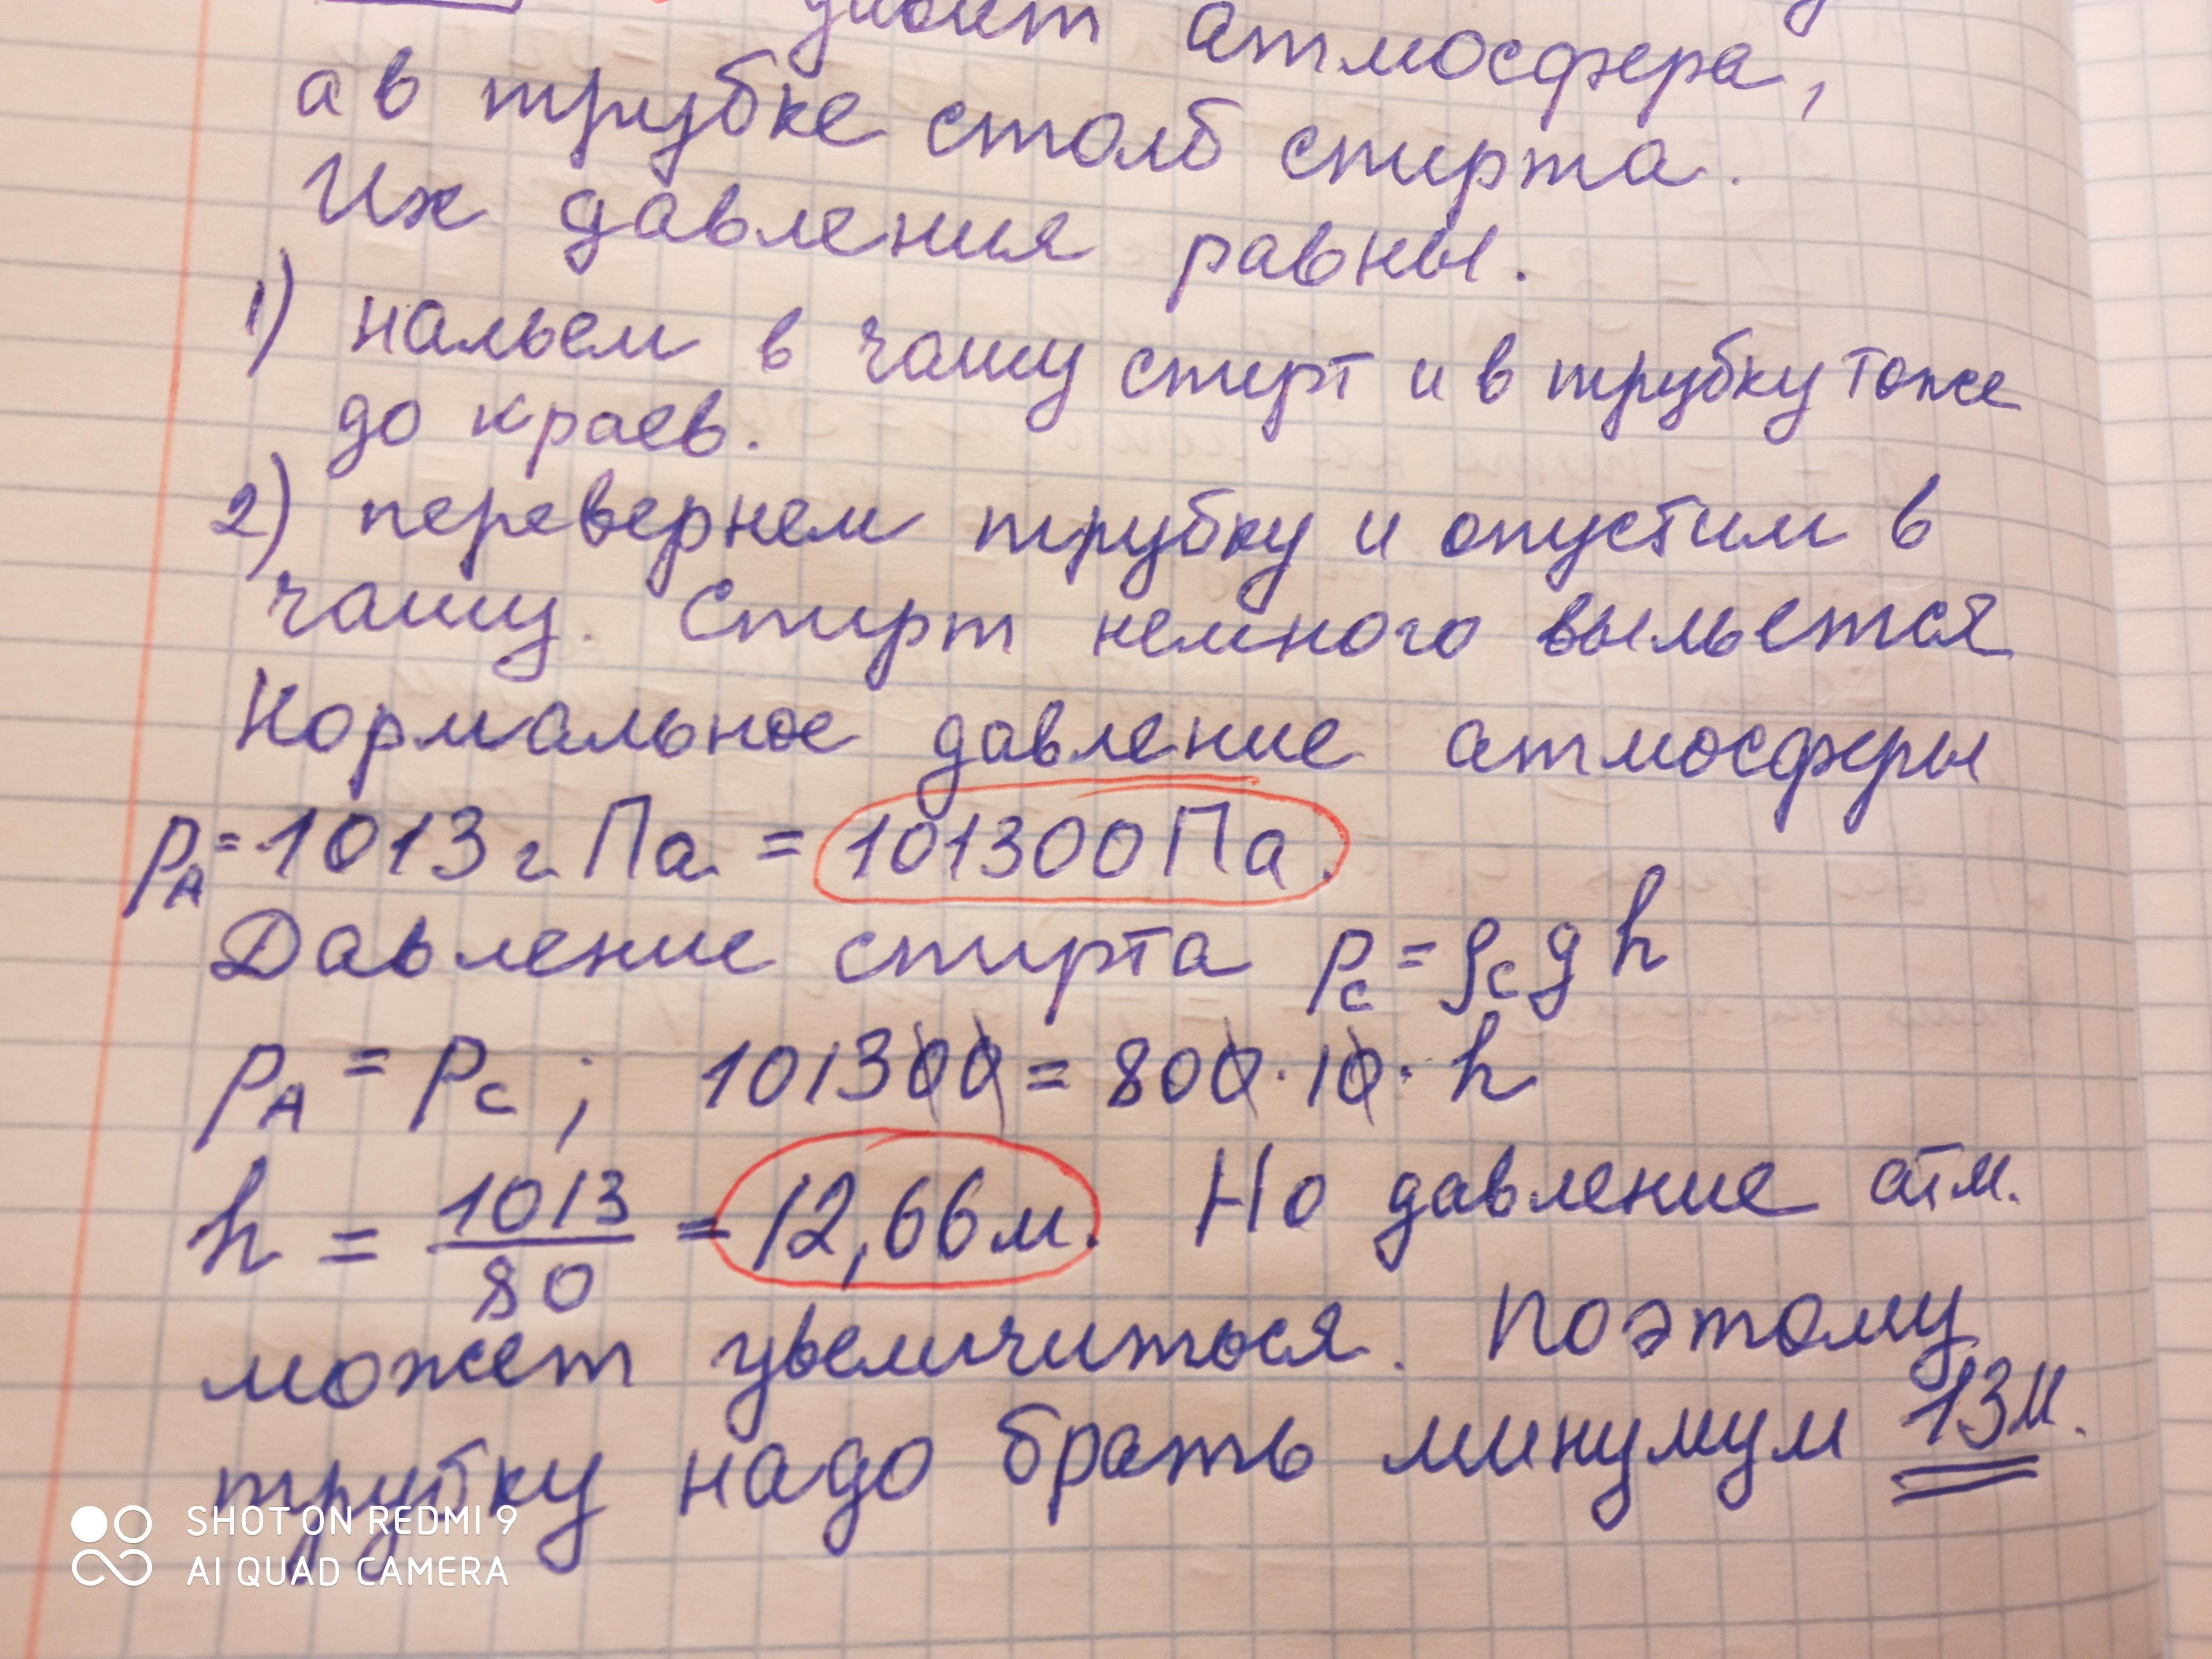 атмосфера,
а в трубке столб спирта.
Их давления равны.
1) нальем в чашу спирт и в трубку тоже
до краев.
2) перевернем трубку и опустим в
чашу. Спирт немного выльется
Нормальное давление атмосферы
pА = 1013 гПа = 101300 Па.
Давление спирта pс = ρс g h
pА = pс ; 101300 = 800 · 10 · h
h = 1013/80 = 12,66 м. Но давление атм.
может увеличиться. Поэтому
трубку надо брать минумум 13 м.
SHOT ON REDMI 9
AI QUAD CAMERA